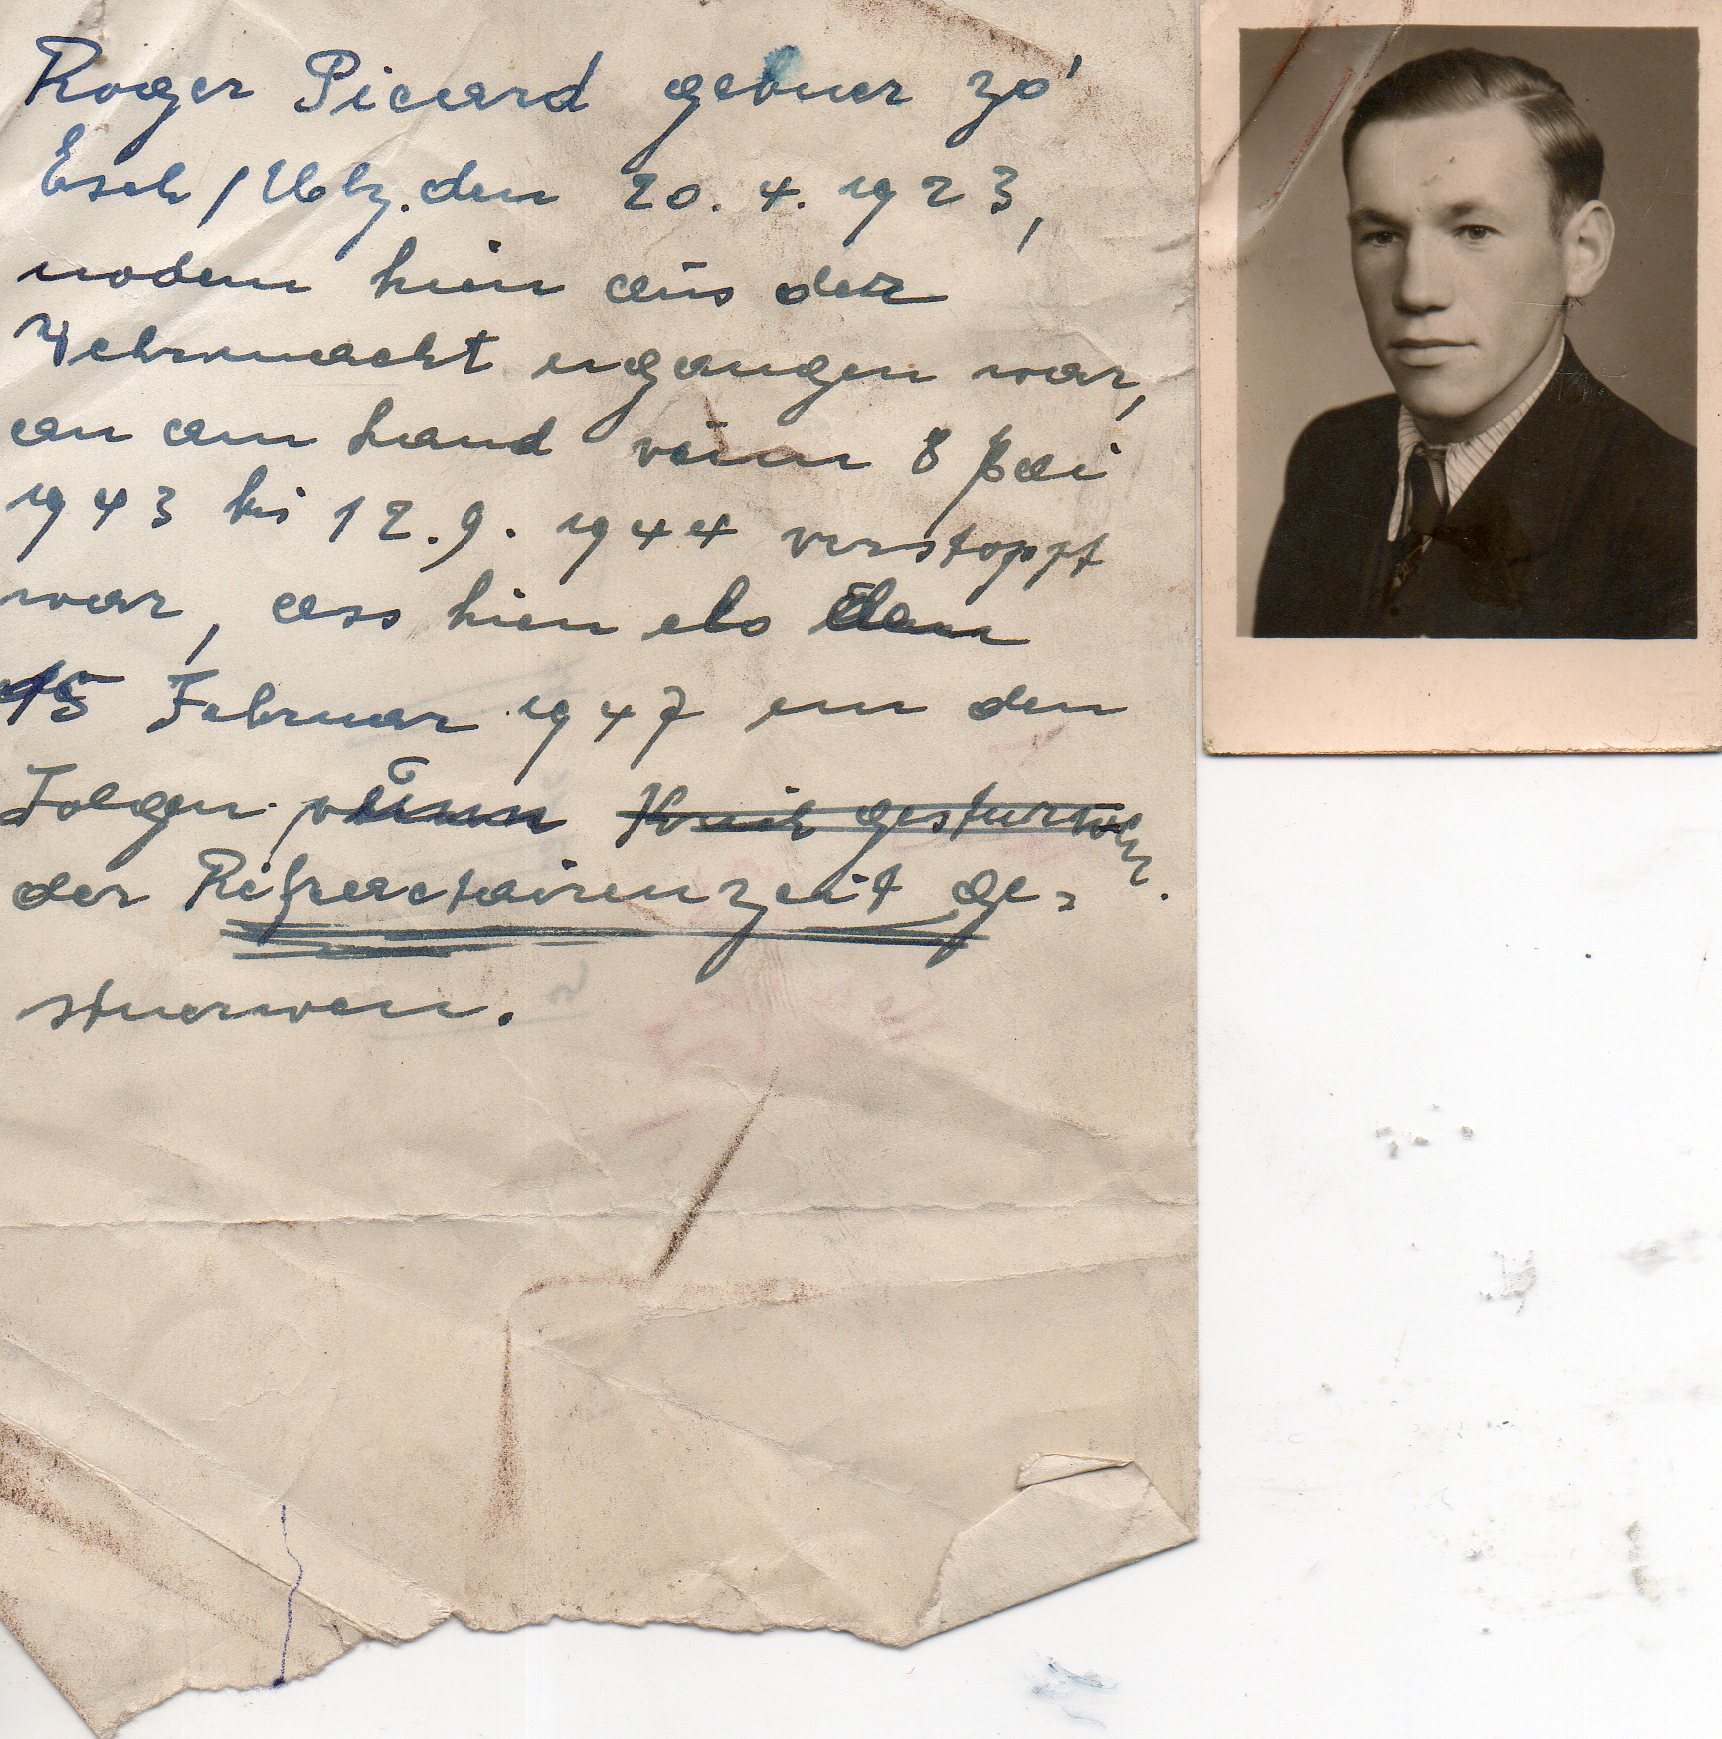 Roger Picard gebuer zo'
Esch / Uelz. den 20. 4. 1923,
nodem hien aus der
Wehrmacht ugangen war,
an am Land vum 8 Mai
1943 bis 12. 9. 1944 verstoppt
war, ass hien elo den
15 Februar 1947 un den
Folgen vun Krich gestuerwen.
der Refractairenzeit ge=
stuerwen.